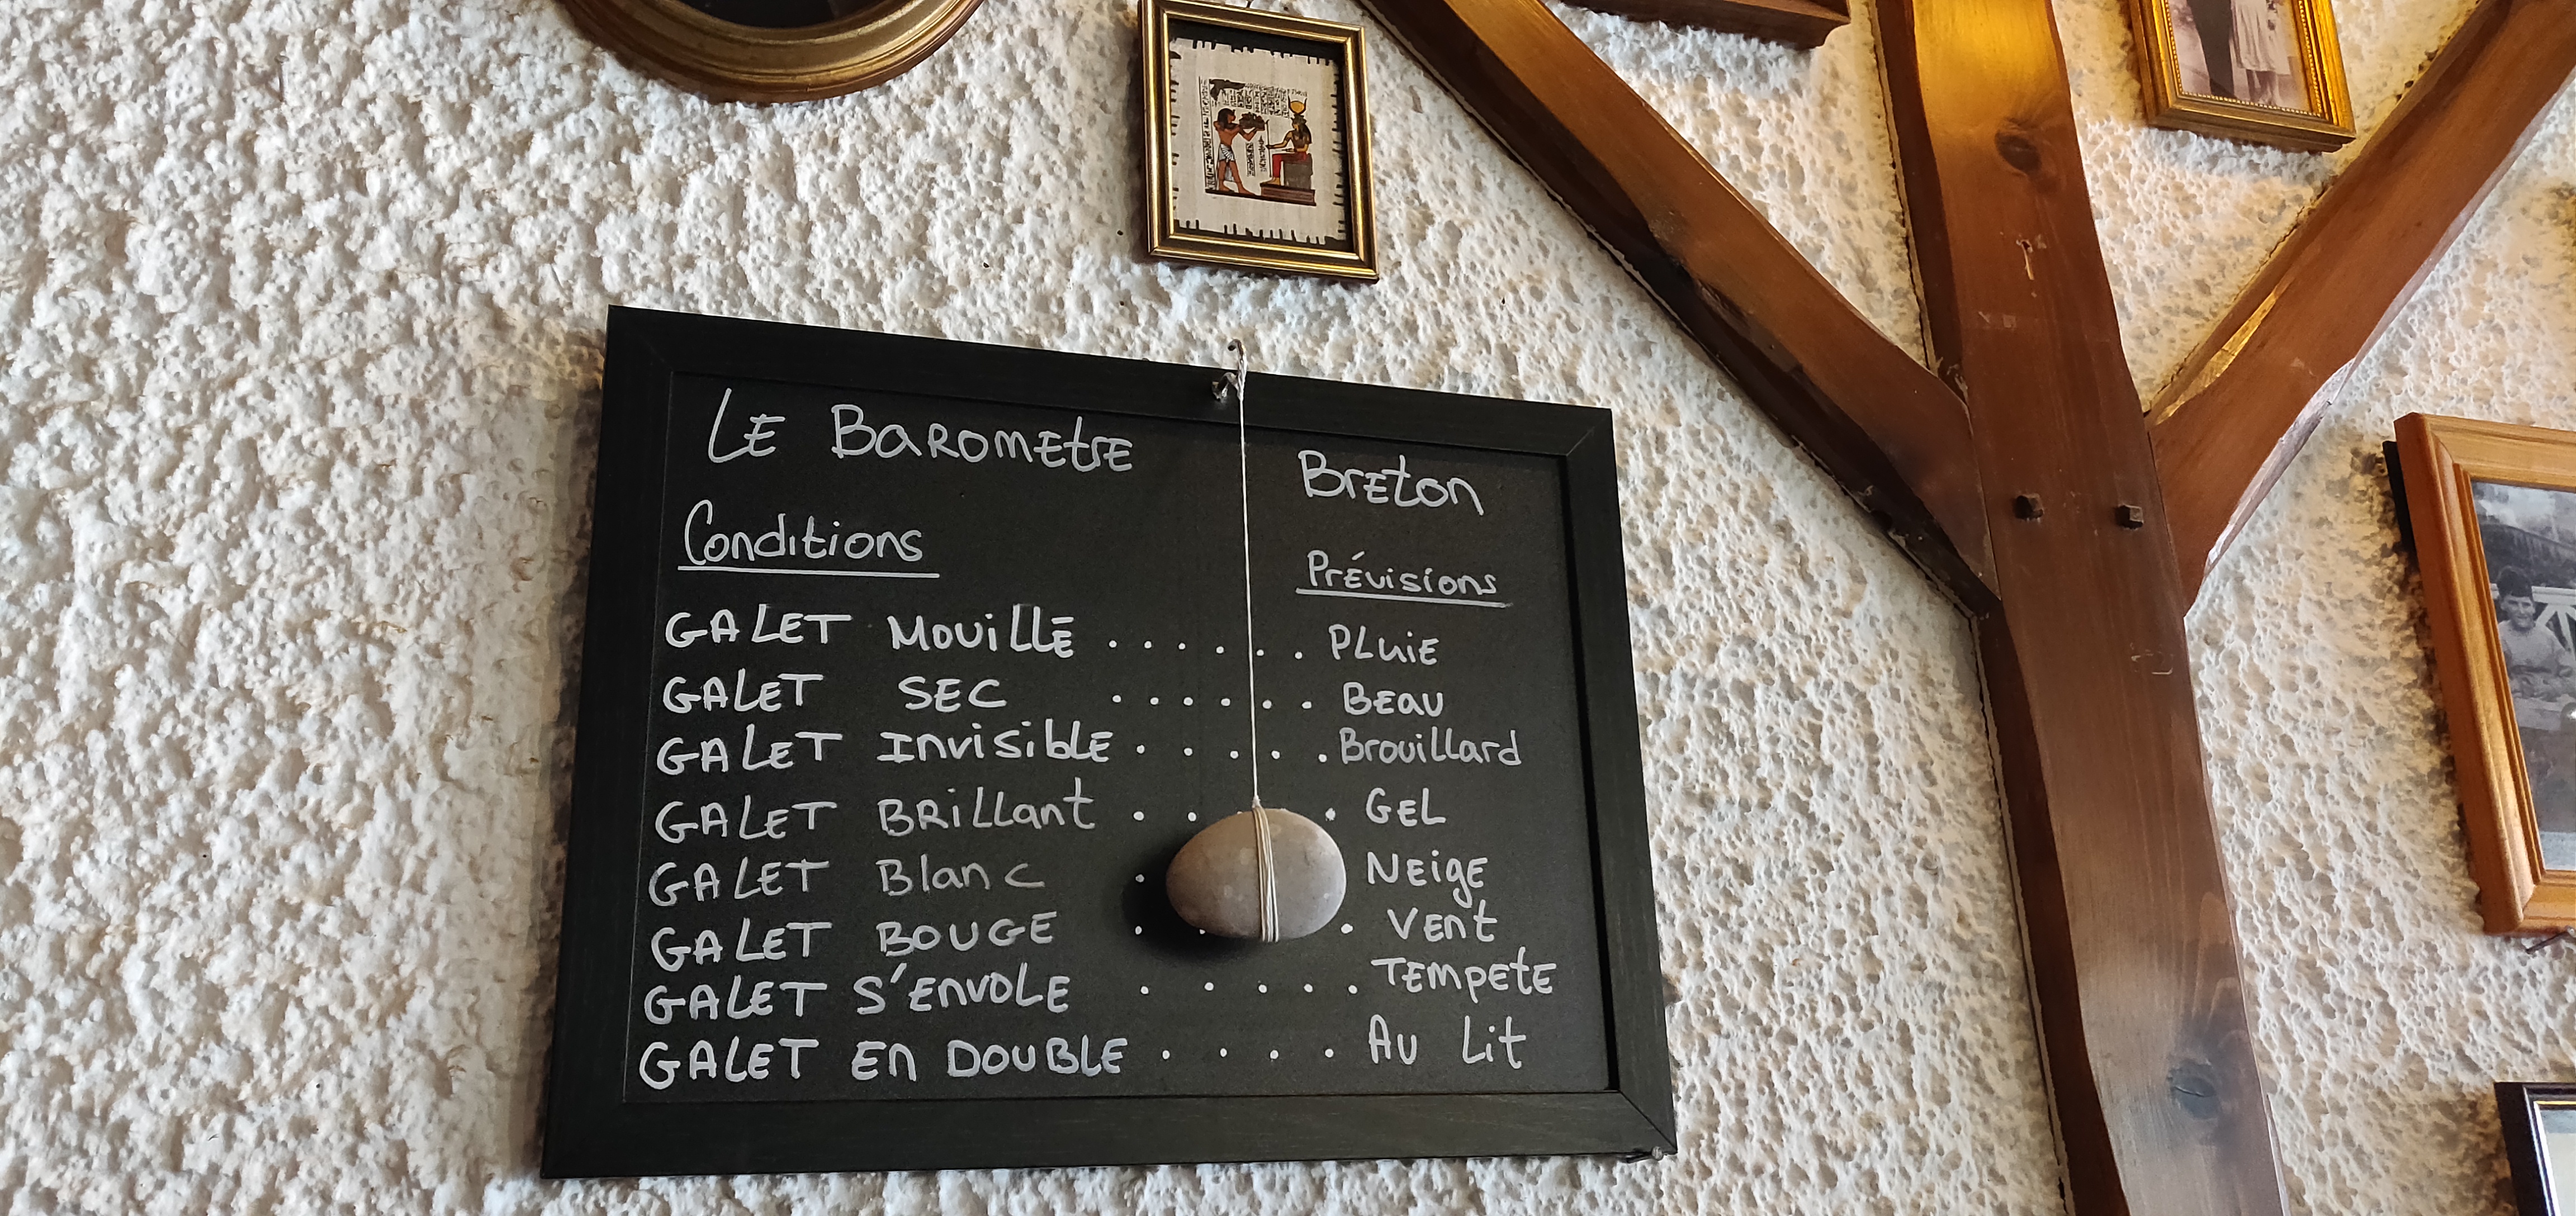 LE BAROMETRE BRETON
Conditions Prévisions
GALET MOUILLÉ . . . . . . PLUIE
GALET SEC . . . . . . BEAU
GALET INVISIBLE . . . . . Brouillard
GALET BRILLANT . . . GEL
GALET Blanc . NEIGE
GALET BOUGE . . . VENT
GALET S'ENVOLE . . . . . TEMPETE
GALET EN DOUBLE . . . . AU Lit